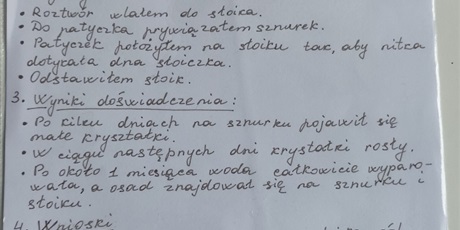 • Roztwór wlałem do słoika.
• Do patyczka przywiązałem sznurek.
• Patyczek położyłem na słoiku tak, aby nitka
dotykała dna słoiczka.
• Odstawiłem słoik.
3. Wyniki doświadczenia:
• Po kilku dniach na sznurku pojawił się
małe kryształki.
• W ciągu następnych dni kryształki rosły.
• Po około 1 miesiąca woda całkowicie wyparo-
wała, a osad znajdował się na sznurku i
słoiku.
4. Wnioski